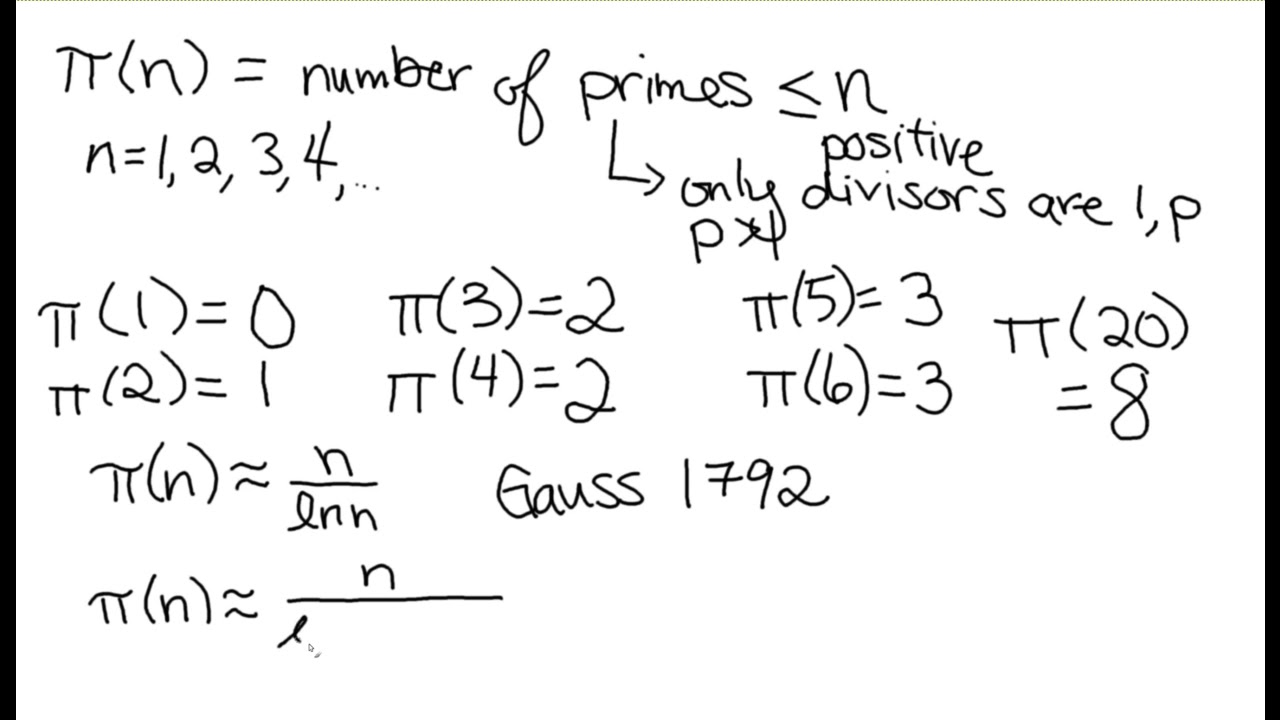 π(n) = number of primes ≤ n
n=1, 2, 3, 4, ...
↳ only positive divisors are 1, p
p ≠ 1
π(1) = 0 π(3) = 2 π(5) = 3 π(20) = 8
π(2) = 1 π(4) = 2 π(6) = 3
π(n) ≈ n/ln n Gauss 1792
π(n) ≈ n/l